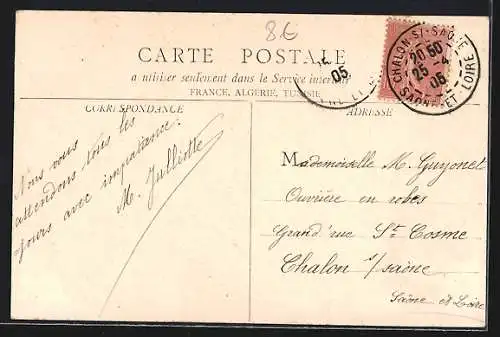 86
CARTE POSTALE
a utiliser seulement dans le Service interieur
FRANCE, ALGERIE, TUNISIE
CHALON-S-SAONE
20 50
25 -4
05
SAONE-ET-LOIRE
05
CORRESPONDANCE
ADRESSE
Nous vous
attendons tous les
jours avec impatience.
M. Julliotte
Mademoiselle M. Guyonet
Ouvrière en robes
Grand'rue St Cosme
Chalon s/saône
Saône et Loire